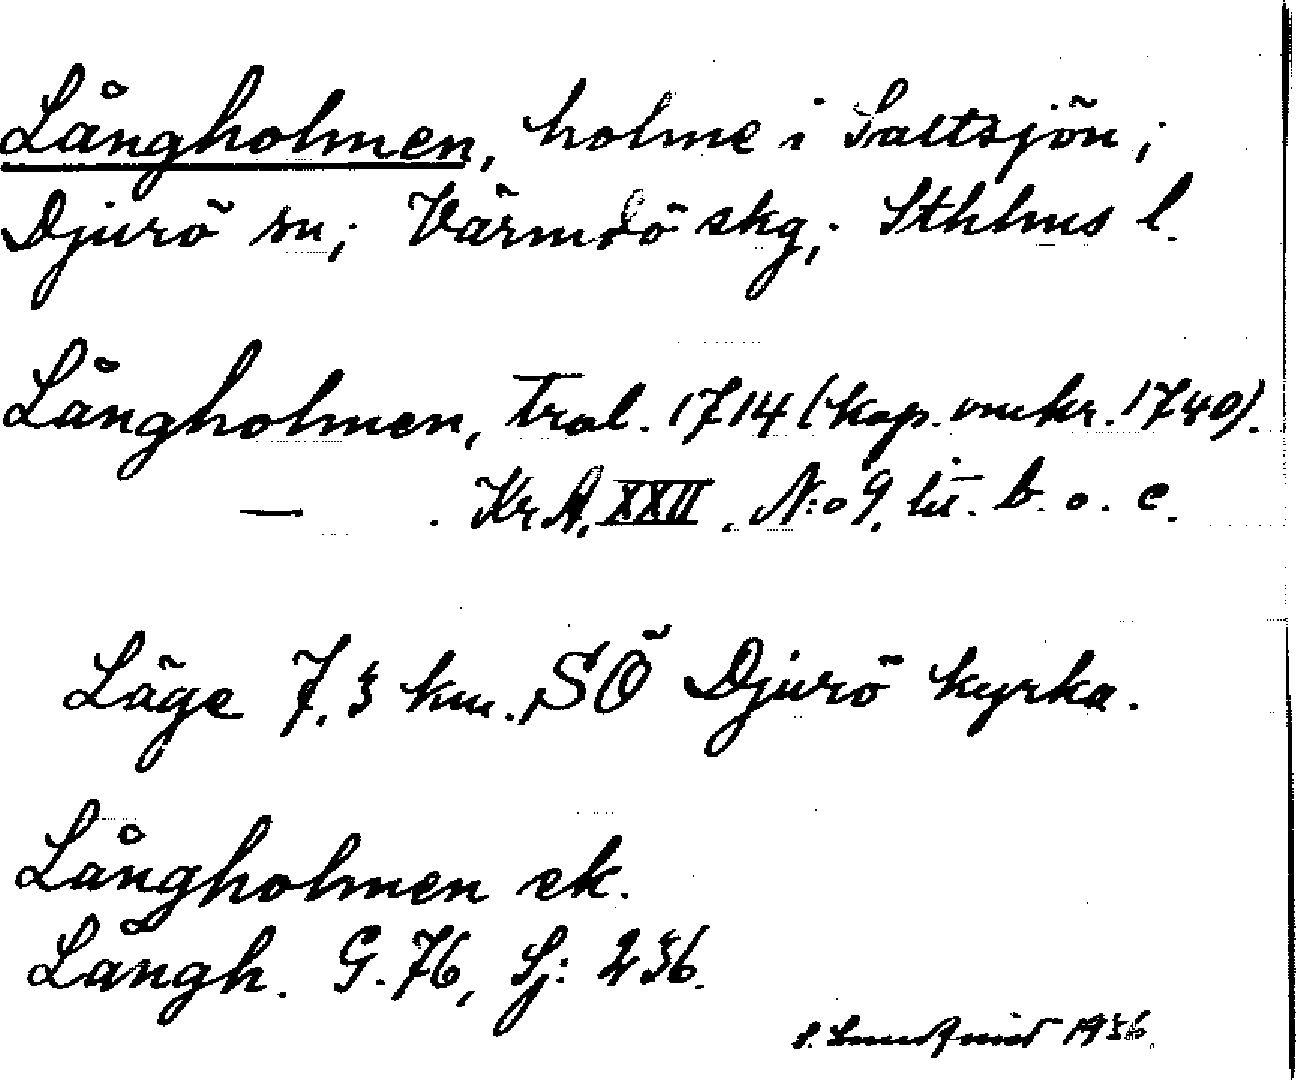 Långholmen, holme i Saltsjön;
Djurö sn; Värmdö skg; Sthlms l.
Långholmen, tral. 1714 (kop. omkr. 1740).
— . Kr A. XXII. N:o 9. lit. b. o. c.
Läge 7,3 km. SÖ Djurö kyrka.
Långholmen ek.
Långh. G. 76, Sj: 236.
S. 1936.